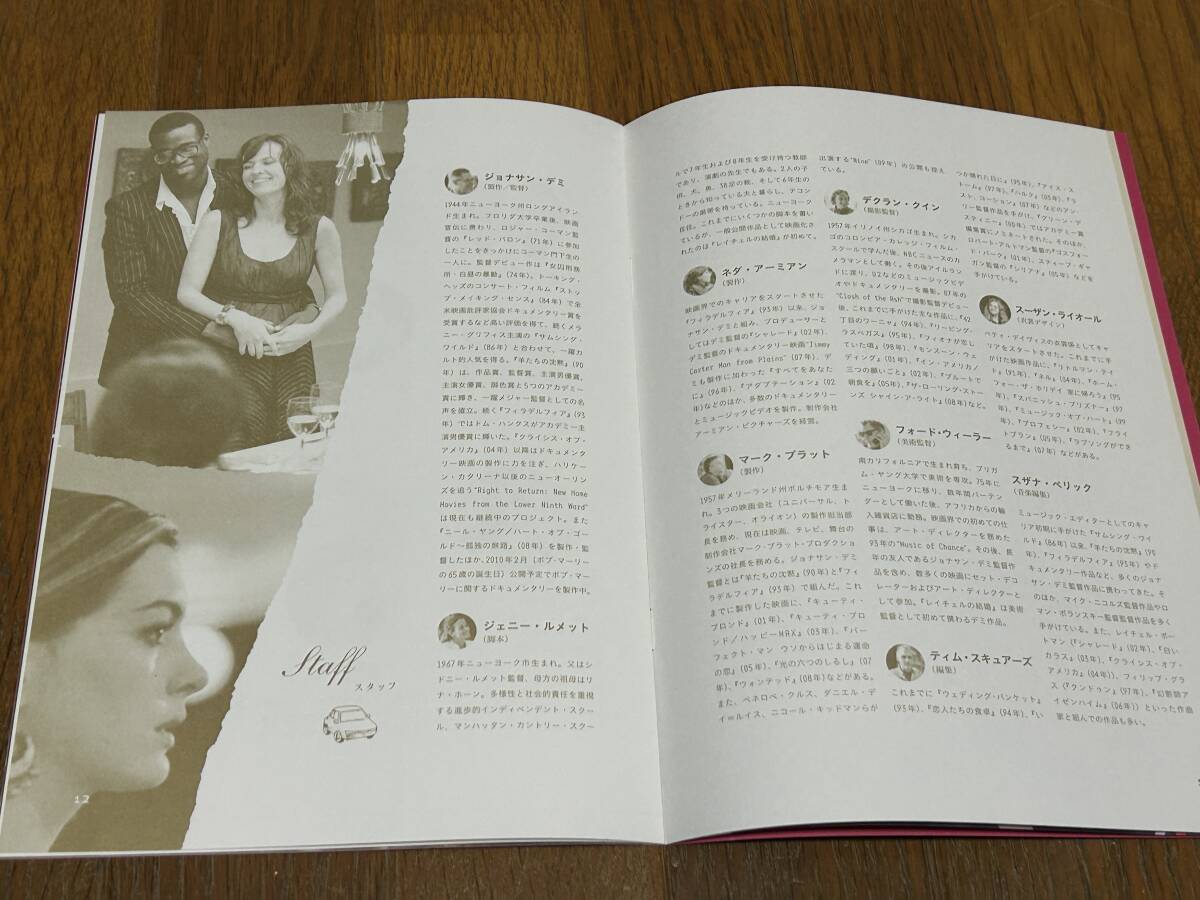 Staff
スタッフ
12
ジョナサン・デミ
(製作／監督)
1944年ニューヨーク州ロングアイラン
ド生まれ。フロリダ大学卒業後、映画
宣伝に携わり、ロジャー・コーマン監
督の『レッド・バロン』(71年) に参加
したことをきっかけにコーマン門下生の
一人に。監督デビュー作は『女囚刑務
所・白昼の暴動』(74年)。トーキング・
ヘッズのコンサート・フィルム『ストッ
プ・メイキング・センス』(84年) で全
米映画批評家協会ドキュメンタリー賞を
受賞するなど高い評価を得て、続くメラ
ニー・グリフィス主演の『サムシング・
ワイルド』(86年) と合わせて、一躍カ
ルト的人気を得る。『羊たちの沈黙』(90
年) は、作品賞、監督賞、主演男優賞、
主演女優賞、脚色賞と5つのアカデミー
賞に輝き、一躍メジャー監督としての名
声を確立。続く『フィラデルフィア』(93
年) ではトム・ハンクスがアカデミー主
演男優賞に輝いた。『クライシス・オブ・
アメリカ』(04年) 以降はドキュメンタ
リー映画の製作に力を注ぎ、ハリケー
ン・カタリーナ以後のニューオーリン
ズを追う"Right to Return: New Home
Movies from the Lower Ninth Ward"
は現在も継続中のプロジェクト。また
『ニール・ヤング／ハート・オブ・ゴ
ールド～孤独の旅路』(08年) を製作・監
督したほか、2010年2月 (ボブ・マーリー
の65歳の誕生日) 公開予定でボブ・マー
リーに関するドキュメンタリーを製作中。
ジェニー・ルメット
(脚本)
1967年ニューヨーク市生まれ。父はシ
ドニー・ルメット監督、母方の祖母はリ
ナ・ホーン。多様性と社会的責任を重視
する進歩的インディペンデント・スクー
ル、マンハッタン・カントリー・スクー
ルで7年生および8年生を受け持つ教師
であり、演劇の先生でもある。2人の子
供、犬、魚、38足の靴、そして6年生の
ときから知っている夫と暮らし、テコン
ドーの黒帯を持っている。ニューヨーク
在住。これまでにいくつかの脚本を書い
ているが、一般公開作品として映画化さ
れたのは『レイチェルの結婚』が初めて。
ネダ・アーミアン
(製作)
映画界でのキャリアをスタートさせた
『フィラデルフィア』(93年) 以来、ジョ
ナサン・デミと組み、プロデューサーと
してはデミ監督の『シャレード』(02年)、
デミ監督のドキュメンタリー映画"Jimmy
Carter Man from Plains" (07年)、デ
ミも製作に加わった『すべてをあなた
に』(96年)、『アダプテーション』(02
年)などのほか、多数のドキュメンタリー
とミュージックビデオを製作。制作会社
アーミアン・ピクチャーズを経営。
マーク・プラット
(製作)
1957年メリーランド州ボルチモア生ま
れ。3つの映画会社 (ユニバーサル、ト
ライスター、オライオン) の製作担当部
長を務め、現在は映画、テレビ、舞台の
制作会社マーク・プラット・プロダクショ
ンズの社長を務める。ジョナサン・デミ
監督とは『羊たちの沈黙』(90年) と『フィ
ラデルフィア』(93年) で組んだ。これ
までに製作した映画に、『キューティ・
ブロンド』(01年)、『キューティ・ブロ
ンド／ハッピーMAX』(03年)、『パー
フェクト・マン ウソからはじまる運命
の恋』(05年)、『光の六つのしるし』(07
年)、『ウォンテッド』(08年)などがある。
また、ペネロペ・クルス、ダニエル・デ
イ＝ルイス、ニコール・キッドマンらが
出演する"Nine" (09年) の公開も控え
ている。
デクラン・クイン
(撮影監督)
1957年イリノイ州シカゴ生まれ。シカ
ゴのコロンビア・カレッジ・フィルム・
スクールで学んだ後、NBCニュースのカ
メラマンとして働く。その後アイルラン
ドに渡り、U2などのミュージックビデ
オやドキュメンタリーを撮影。87年の
"Clash of the Ash"で撮影監督デビュー
後、これまでに手がけた主な作品に、『42
丁目のワーニャ』(94年)、『リービング・
ラスベガス』(95年)、『フィオナが恋し
ていた頃』(98年)、『モンスーン・ウェ
ディング』(01年)、『イン・アメリカ／
三つの願いごと』(02年)、『プルートで
朝食を』(05年)、『ザ・ローリング・ストー
ンズ シャイン・ア・ライト』(08年)など。
フォード・ウィーラー
(美術監督)
南カリフォルニアで生まれ育ち、ブリガ
ム・ヤング大学で美術を専攻。75年に
ニューヨークに移り、数年間バーテン
ダーとして働いた後、アフリカからの輸
入雑貨店に勤務。映画界での初めての仕
事は、アート・ディレクターを務めた
93年の"Music of Chance"。その後、長
年の友人であるジョナサン・デミ監督作
品を含め、数多くの映画にセット・デコ
レーターおよびアート・ディレクターと
して参加。『レイチェルの結婚』は美術
監督として初めて携わるデミ作品。
ティム・スキュアーズ
(編集)
これまでに『ウェディング・バンケット』
(93年)、『恋人たちの食卓』(94年)、『い
つか晴れた日に』(95年)、『アイス・ス
トーム』(97年)、『ハルク』(05年)、『ラ
スト、コーション』(07年) などのアン・
リー監督作品を手がけ、『グリーン・デ
スティニー』(00年) ではアカデミー賞
編集賞にノミネートされた。そのほか、
ロバート・アルトマン監督の『ゴスフォー
ド・パーク』(01年)、スティーブ・ギャ
ガン監督の『シリアナ』(05年) などを
手がけている。
スーザン・ライオール
(衣装デザイン)
ベティ・デイヴィスの衣装係としてキャ
リアをスタートさせた。これまでに手
がけた映画作品に、『リトルマン・テイ
ト』(91年)、『ネル』(94年)、『ホーム・
フォー・ザ・ホリデイ 家に帰ろう』(95
年)、『スパニッシュ・プリズナー』(97
年)、『ミュージック・オブ・ハート』(99
年)、『プロフェシー』(02年)、『フライ
トプラン』(05年)、『ラブソングができ
るまで』(07年) などがある。
スザナ・ペリック
(音楽編集)
ミュージック・エディターとしてのキャ
リア初期に手がけた『サムシング・ワイ
ルド』(86年) 以来、『羊たちの沈黙』(90
年)、『フィラデルフィア』(93年) やド
キュメンタリー作品など、多くのジョナ
サン・デミ監督作品に携わってきた。そ
のほか、マイク・ニコルズ監督作品やロ
マン・ポランスキー監督監督作品を多く
手がけている。また、レイチェル・ポー
トマン (『シャレード』(02年)、『白い
カラス』(03年)、『クライシス・オブ・
アメリカ』(04年))、フィリップ・グラ
ス (『クンドゥン』(97年)、『幻影師ア
イゼンハイム』(06年)) といった作曲
家と組んでの作品も多い。